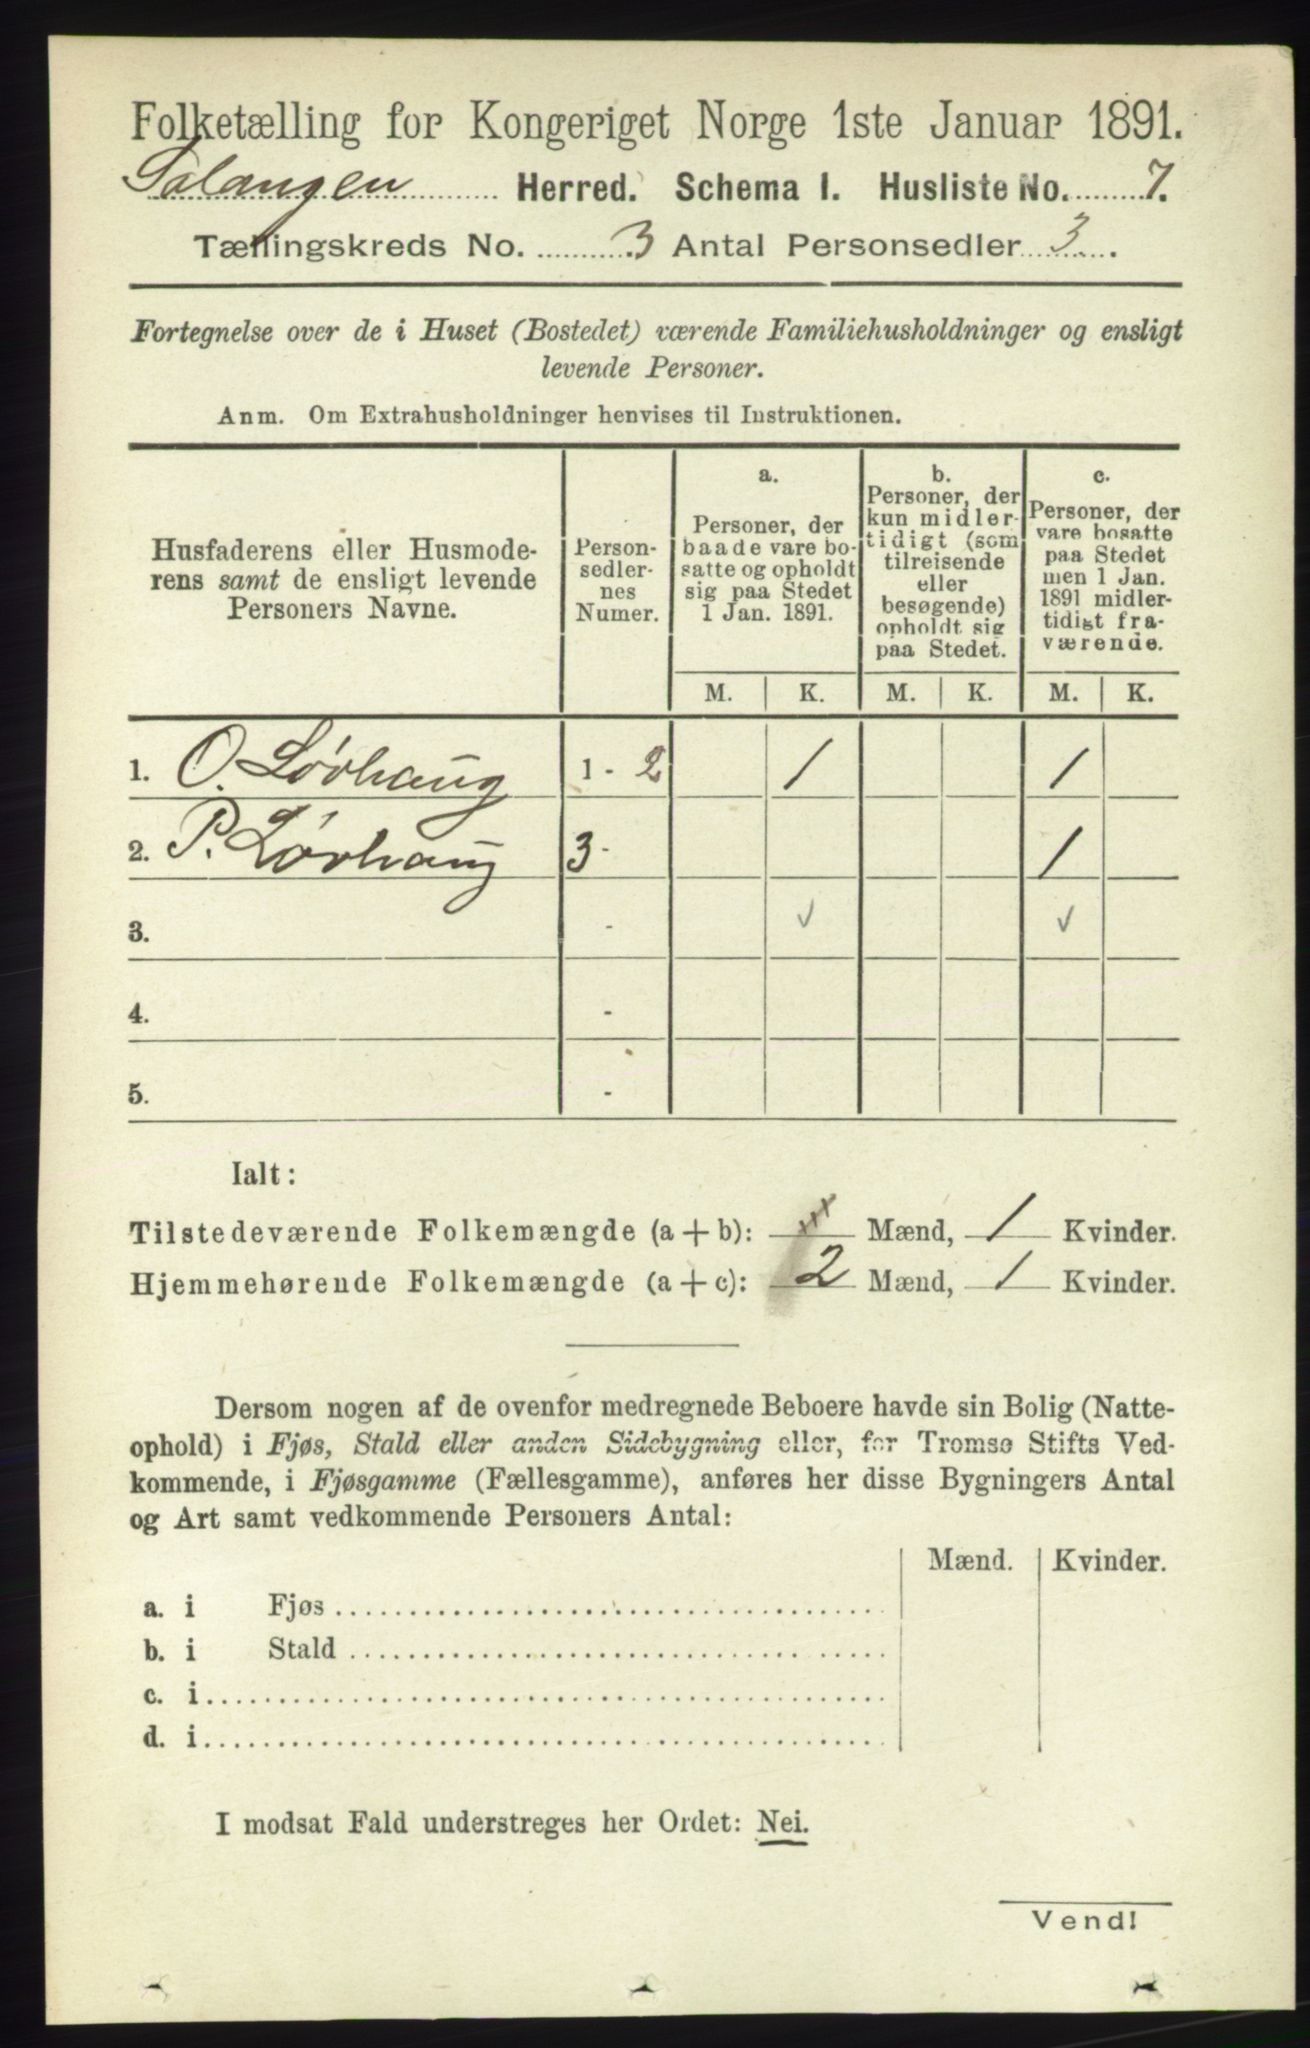 Folketælling for Kongeriget Norge 1ste Januar 1891.
Salangen Herred. Schema I. Husliste No. 7.
Tællingskreds No. 3 Antal Personsedler 3.
Fortegnelse over de i Huset (Bostedet) værende Familiehusholdninger og ensligt
levende Personer.
Anm. Om Extrahusholdninger henvises til Instruktionen.
Husfaderens eller Husmode-
rens samt de ensligt levende
Personers Navne.
Person-
sedler-
nes
Numer.
a.
Personer, der
baade vare bo-
satte og opholdt
sig paa Stedet
1 Jan. 1891.
b.
Personer, der
kun midler-
tidigt (som
tilreisende
eller
besøgende)
opholdt sig
paa Stedet.
c.
Personer, der
vare bosatte
paa Stedet
men 1 Jan.
1891 midler-
tidigt fra-
værende.
M. K. M. K. M. K.
1. O. Løvhaug 1 - 2 1 1
2. P. Løvhaug 3 - 1
3. - ✓ ✓
4. -
5. -
Ialt:
Tilstedeværende Folkemængde (a + b): Mænd, 1 Kvinder.
Hjemmehørende Folkemængde (a + c): 2 Mænd, 1 Kvinder.
Dersom nogen af de ovenfor medregnede Beboere havde sin Bolig (Natte-
ophold) i Fjøs, Stald eller anden Sidebygning eller, for Tromsø Stifts Ved-
kommende, i Fjøsgamme (Fællesgamme), anføres her disse Bygningers Antal
og Art samt vedkommende Personers Antal:
Mænd. Kvinder.
a. i Fjøs
b. i Stald
c. i
d. i
I modsat Fald understreges her Ordet: Nei.
Vend!